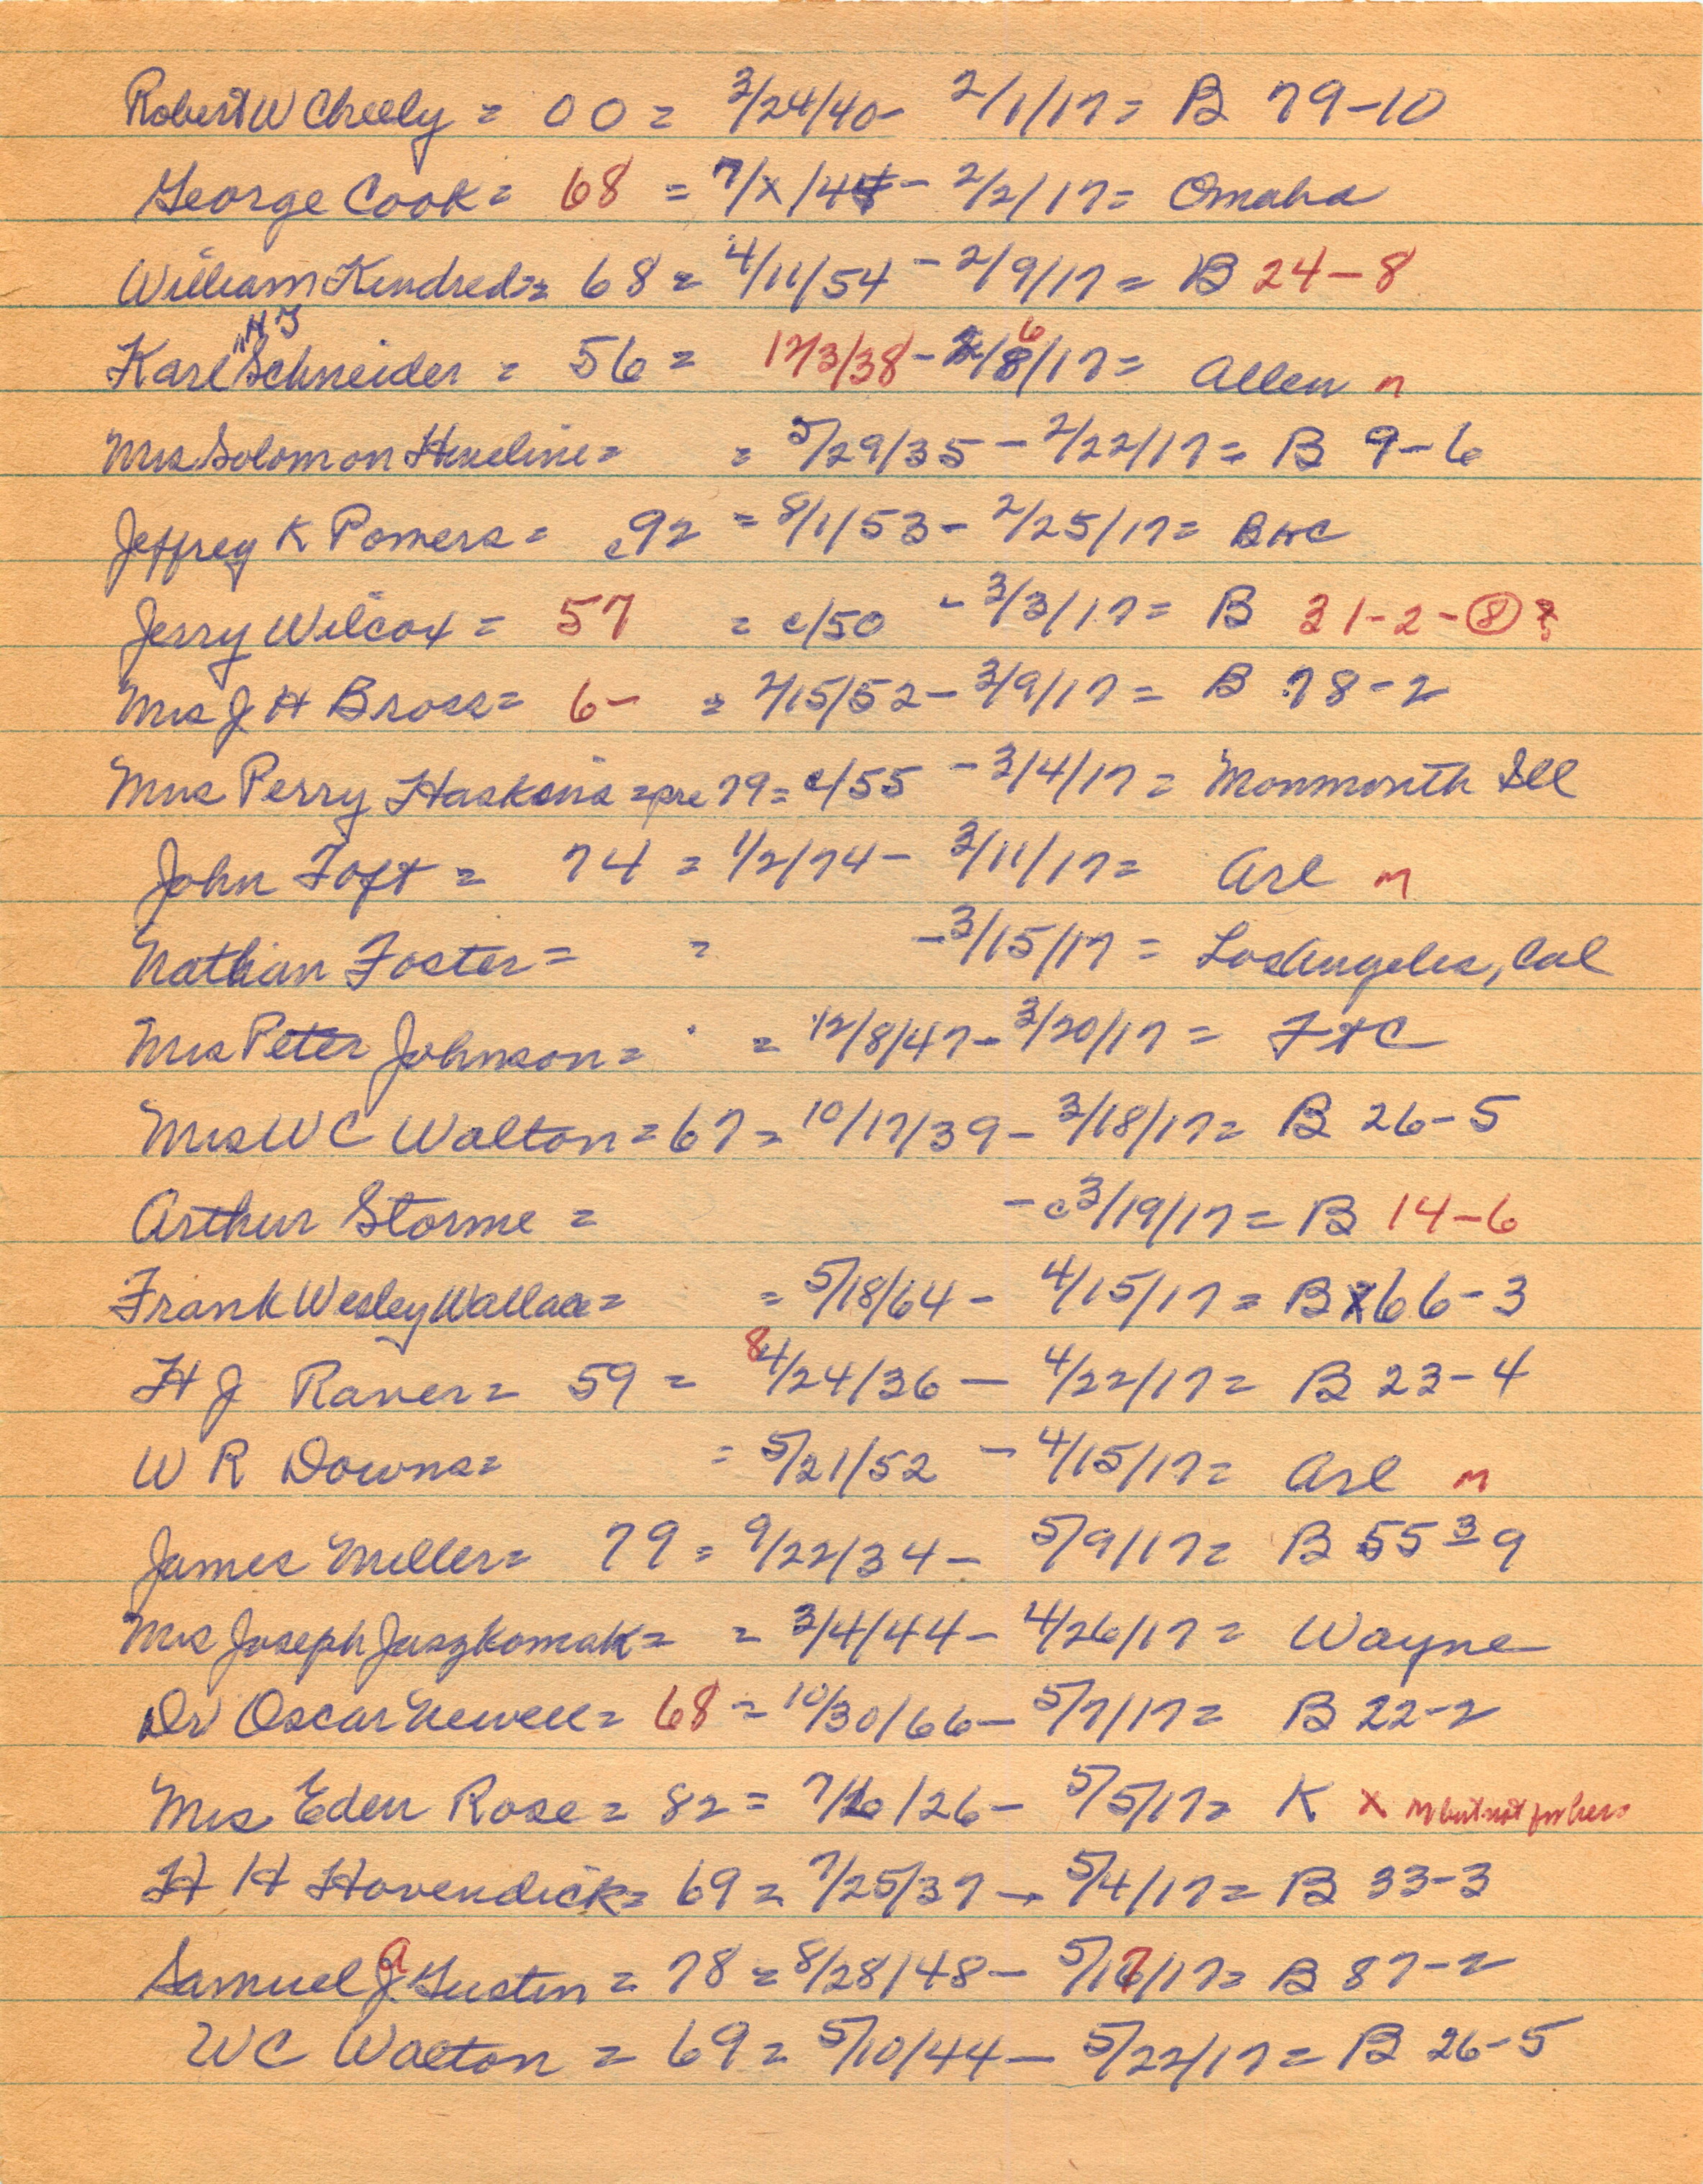 Robert W Cheely = 00 = 3/24/40 - 2/1/17 = B 79-10
George Cook = 68 = 7/x/44 - 2/2/17 = Omaha
William Kindred = 68 = 4/11/54 - 2/9/17 = B 24-8
Karl "HJ" Schneider = 56 = 12/3/38 - 2/6/17 = Allen m
Mrs Solomon Hineline = = 5/29/35 - 2/22/17 = B 9-6
Jeffrey K Pomers = c92 = 8/1/53 - 2/25/17 =
Jerry Wilcox = 57 = c/50 - 3/3/17 = B 31-2-8 ?
Mrs J H Bross = 6- = 2/15/52 - 3/9/17 = B 78-2
Mrs Perry Haskins = pre 79 = c/55 - 3/4/17 = Monmonth Ill
John Toft = 74 = 1/2/74 - 3/11/17 = Arl m
Nathan Foster = = - 3/15/17 = Los Angeles, Cal
Mrs Peter Johnson = = 12/8/47 - 3/20/17 = FtC
Mrs WC Walton = 67 = 10/17/39 - 3/18/17 = B 26-5
Arthur Storme = - c3/19/17 = B 14-6
Frank Wesley Wallace = = 5/18/64 - 4/15/17 = B 66-3
H J Raver = 59 = 8/24/36 - 4/22/17 = B 23-4
W R Downs = = 5/21/52 - 4/15/17 = Arl m
James Miller = 79 = 9/22/34 - 5/9/17 = B 55-39
Mrs Joseph Juszkomak = = 3/4/44 - 4/26/17 = Wayne
Dr Oscar Newell = 68 = 10/30/66 - 5/7/17 = B 22-2
Mrs Eden Rose = 82 = 7/26/26 - 5/5/17 = K x m but not for hers
H H Hovendick = 69 = 7/25/37 - 5/4/17 = B 33-3
Samuel A Gustin = 78 = 8/28/48 - 5/17/17 = B 87-2
WC Walton = 69 = 5/10/44 - 5/22/17 = B 26-5